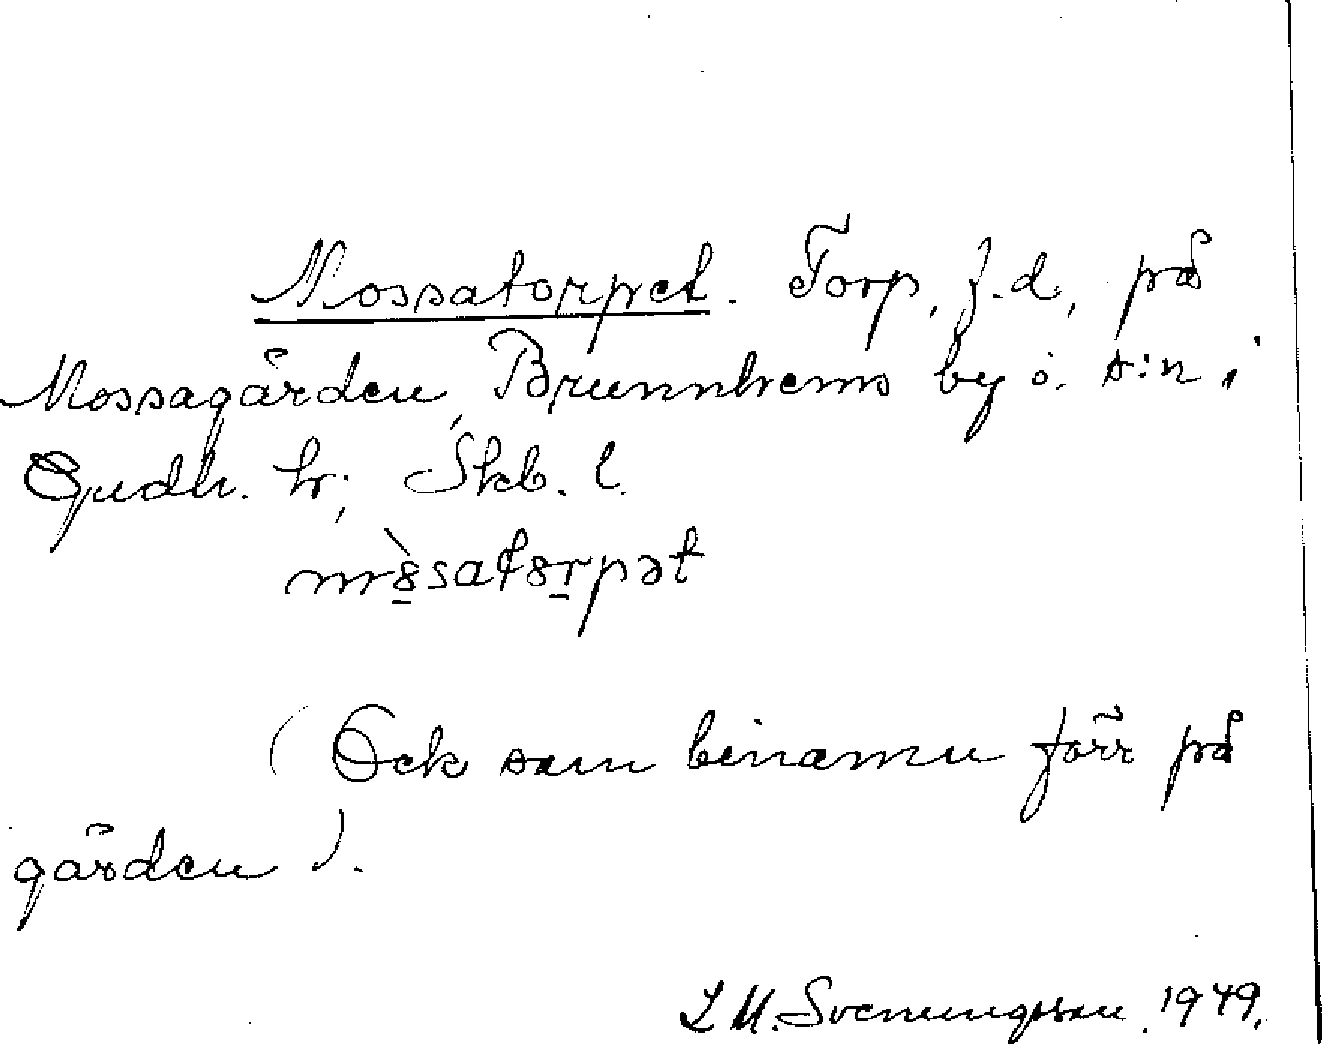 Mossatorpet. Torp, f.d., på
Mossagården, Brunnhems by o. s:n,
Gudh. hr; Skb. l.
mòsatorpət
(Ock som binamn förr på
gården).
L M. Svenungsson, 1949.